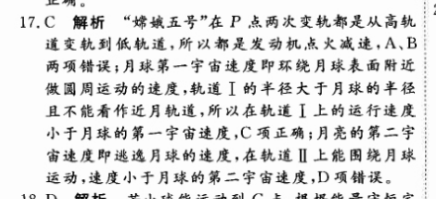 17. C 解析 “嫦娥五号”在 P 点两次变轨都是从高轨
道变轨到低轨道,所以都是发动机点火减速,A、B
两项错误;月球第一宇宙速度即环绕月球表面附近
做圆周运动的速度,轨道 Ⅰ 的半径大于月球的半径
且不能看作近月轨道,所以在轨道 Ⅰ 上的运行速度
小于月球的第一宇宙速度,C 项正确;月亮的第二宇
宙速度即逃逸月球的速度,在轨道 Ⅱ 上能围绕月球
运动,速度小于月球的第二宇宙速度,D 项错误。
18. D 解析